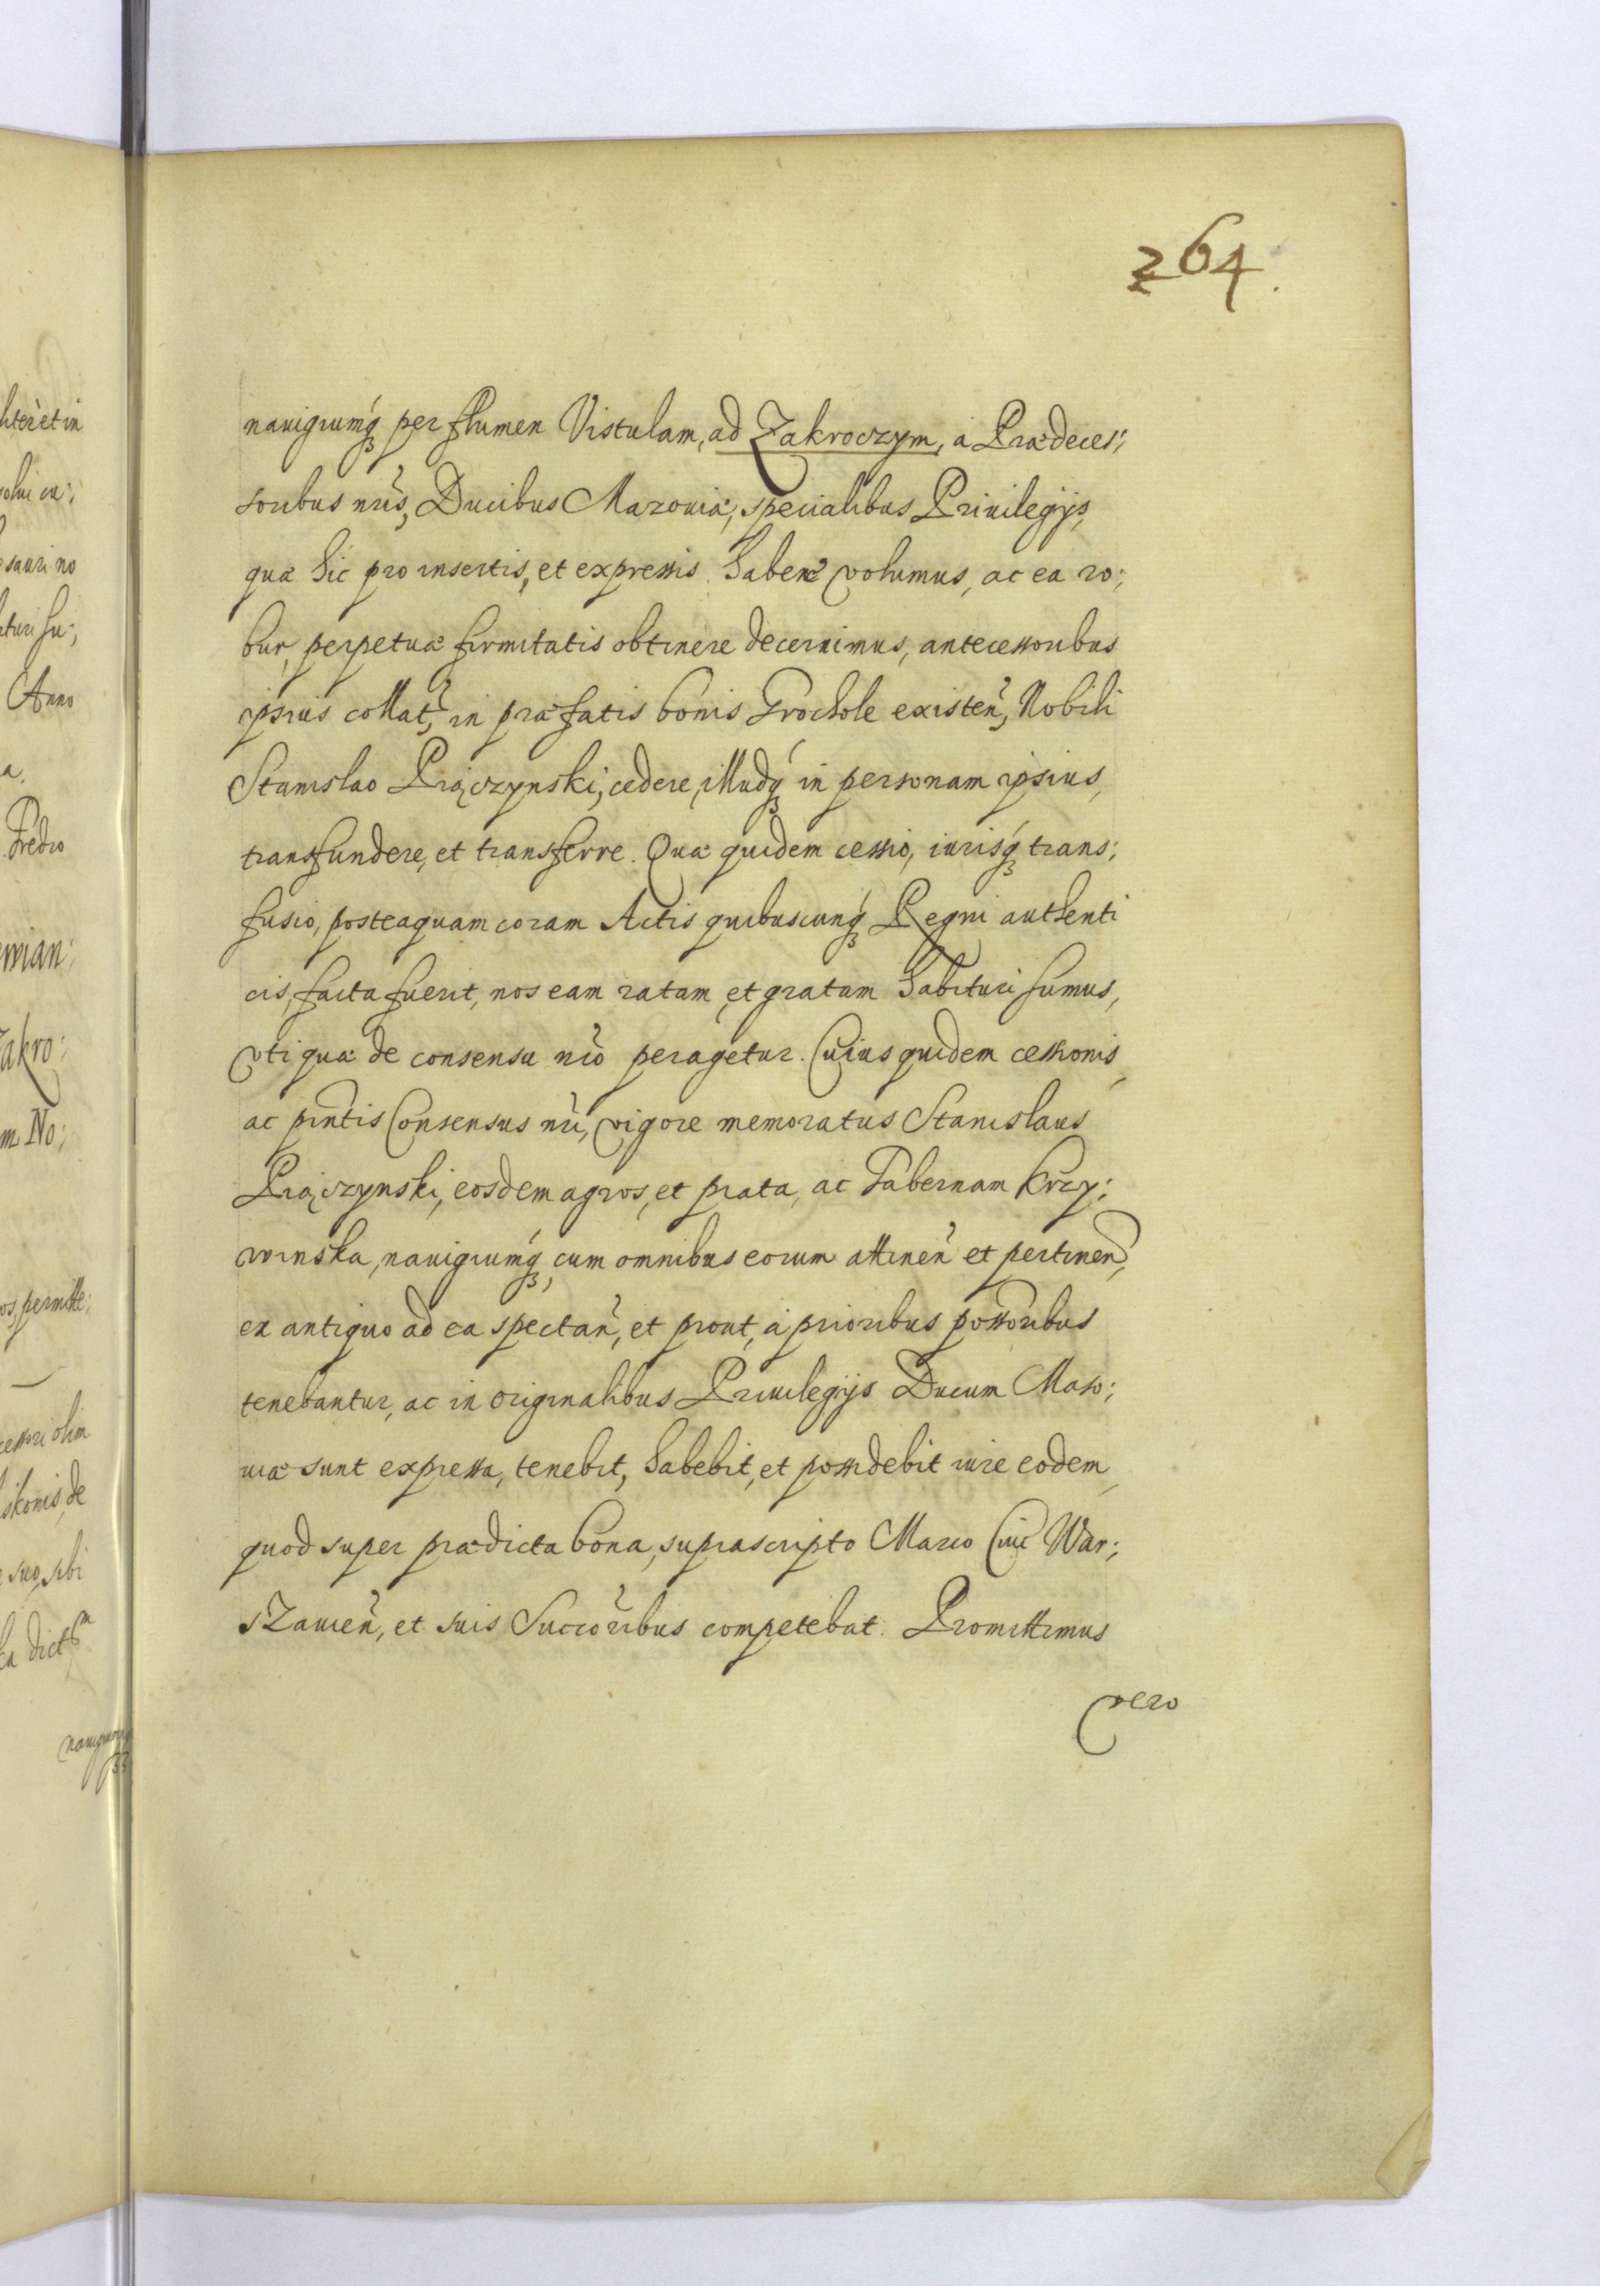 264.
nauigiumq́ꝫ per flumen Vistulam, ad Zakroczym, a Prædeces;
soribus nr̃is, Ducibus Mazouiæ, specialibus Priuilegijs,
quæ hic pro insertis, et expressis haberi volumus, ac ea ro;
bur, perpetuæ firmitatis obtinere decernimus, antecessoribus
ipsius collat̃, in præfatis bonis Grochole existen̄, Nobili
Stanislao Prączynski, cedere, illudq́ꝫ in personam ipsius,
transfundere, et transferre. Quæ quidem cessio, iurisq́ꝫ trans;
fusio, posteaquam coram Actis quibuscunq́ꝫ Regni authenti
cis, facta fuerit, nos eam ratam, et gratam habituri sumus,
vti quæ de consensu nr̃o peragetur. Cuius quidem cessionis,
ac pñtis Consensus nr̃i, vigore memoratus Stanislaus
Prączynski, eosdem agros, et prata, ac Tabernam Krzy;
winska, nauigiumq́ꝫ, cum omnibus eorum attinen̄ et pertinen̄,
ex antiquo ad ea spectan̄, et prout, á prioribus possõribus
tenebantur, ac in originalibus Priuilegijs Ducum Maso;
uiæ sunt expressa, tenebit, habebit, et possidebit iure eodem,
quod super prædicta bona, suprascripto Marco Ciui War;
sZauien̄, et suis Succõribus competebat. Promittimus
vero
hter et in
sauri no
Anno
Fredro
mian;
Zakro;
m No;
os, permitte;
cessori olim
suo, sibi
dictam